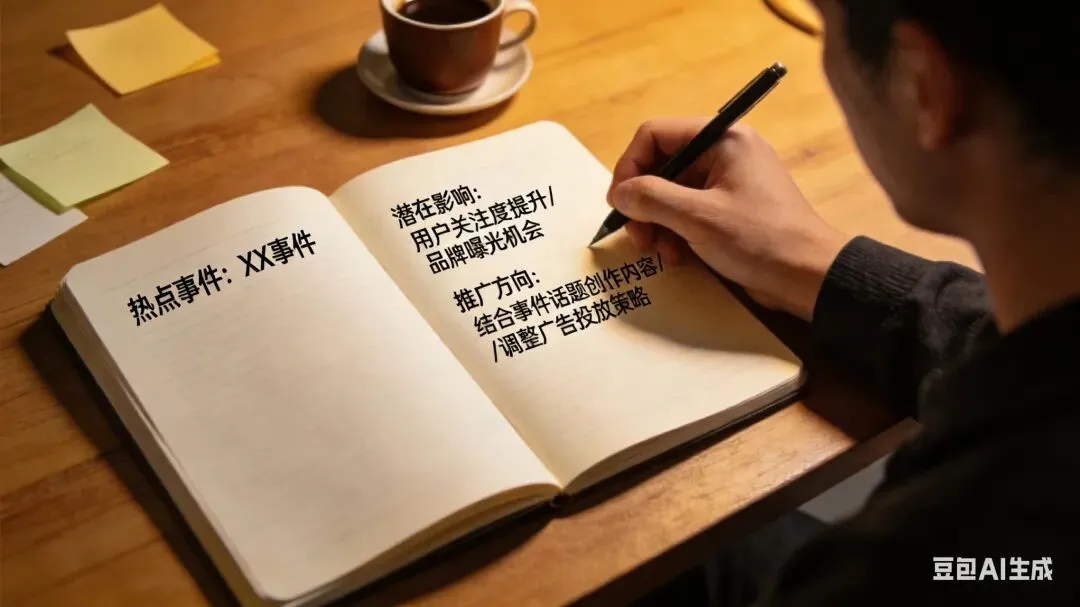 热点事件：XX事件
潜在影响：
用户关注度提升/
品牌曝光机会
推广方向：
结合事件话题创作内容/
/调整广告投放策略
豆包AI生成